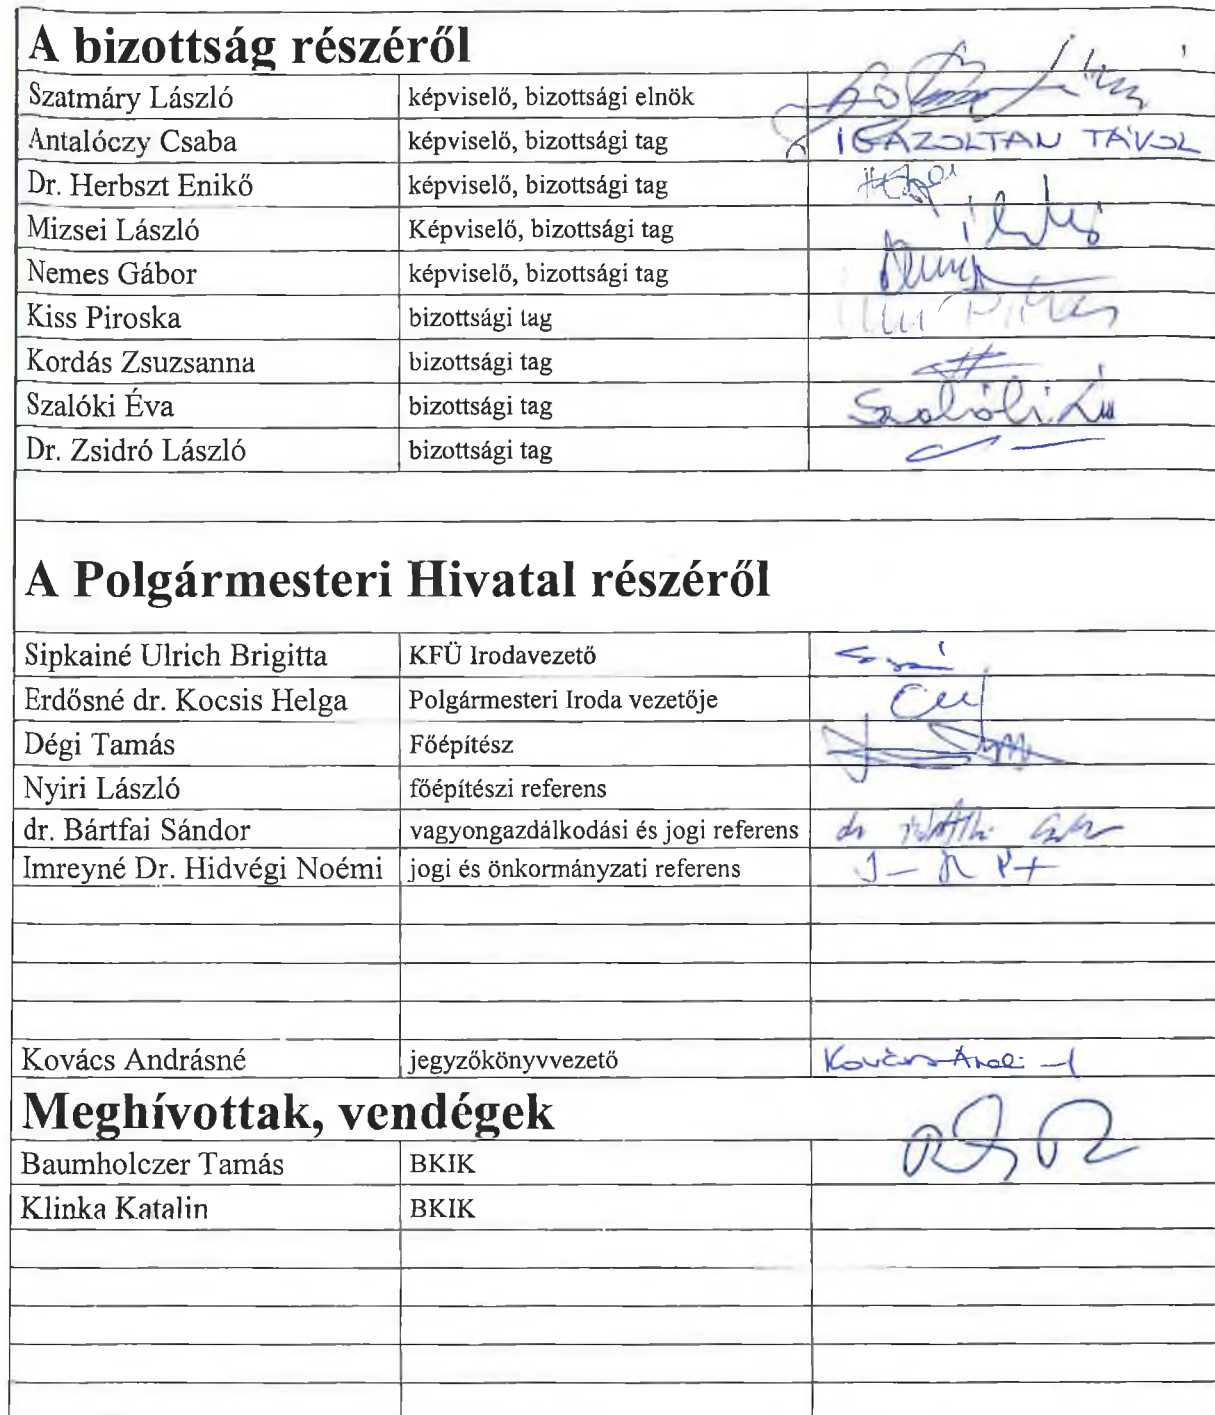 A bizottság részéről
Szatmáry László képviselő, bizottsági elnök
Antalóczy Csaba képviselő, bizottsági tag IGAZOLTAN TÁVOL
Dr. Herbszt Enikő képviselő, bizottsági tag
Mizsei László Képviselő, bizottsági tag
Nemes Gábor képviselő, bizottsági tag
Kiss Piroska bizottsági tag
Kordás Zsuzsanna bizottsági tag
Szalóki Éva bizottsági tag Szalóki Éva
Dr. Zsidró László bizottsági tag
A Polgármesteri Hivatal részéről
Sipkainé Ulrich Brigitta KFÜ Irodavezető
Erdősné dr. Kocsis Helga Polgármesteri Iroda vezetője
Dégi Tamás Főépítész
Nyiri László főépítészi referens
dr. Bártfai Sándor vagyongazdálkodási és jogi referens
Imreyné Dr. Hidvégi Noémi jogi és önkormányzati referens
Kovács Andrásné jegyzőkönyvvezető
Meghívottak, vendégek
Baumholczer Tamás BKIK
Klinka Katalin BKIK